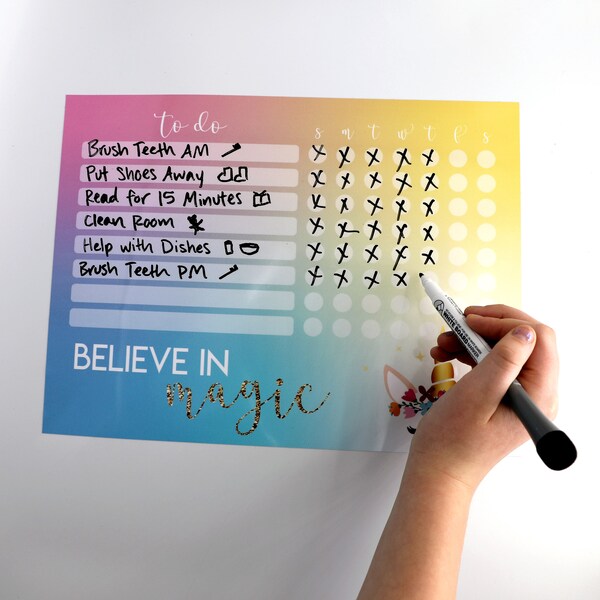 to do s m t w t f s
Brush Teeth AM X X X X X
Put Shoes Away X X X X X
Read for 15 Minutes X X X X X
Clean Room X X X X X
Help with Dishes X X X X X
Brush Teeth PM X X X X
BELIEVE IN
magic
WHITE BOARD